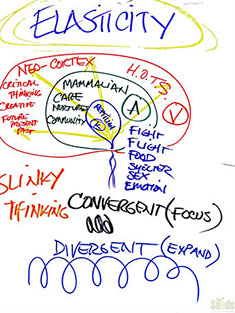 ELASTICITY
NEO-CORTEX
H.O.T.S.
CRITICAL
THINKING
CREATIVE
FUTURE
PRESENT
PAST
MAMMALIAN
CARE
NURTURE
COMMUNITY
REPTILIAN
R
Λ
V
FIGHT
FLIGHT
FOOD
SHELTER
SEX
EMOTION
SLINKY
THINKING
CONVERGENT (FOCUS)
DIVERGENT (EXPAND)
Seeds